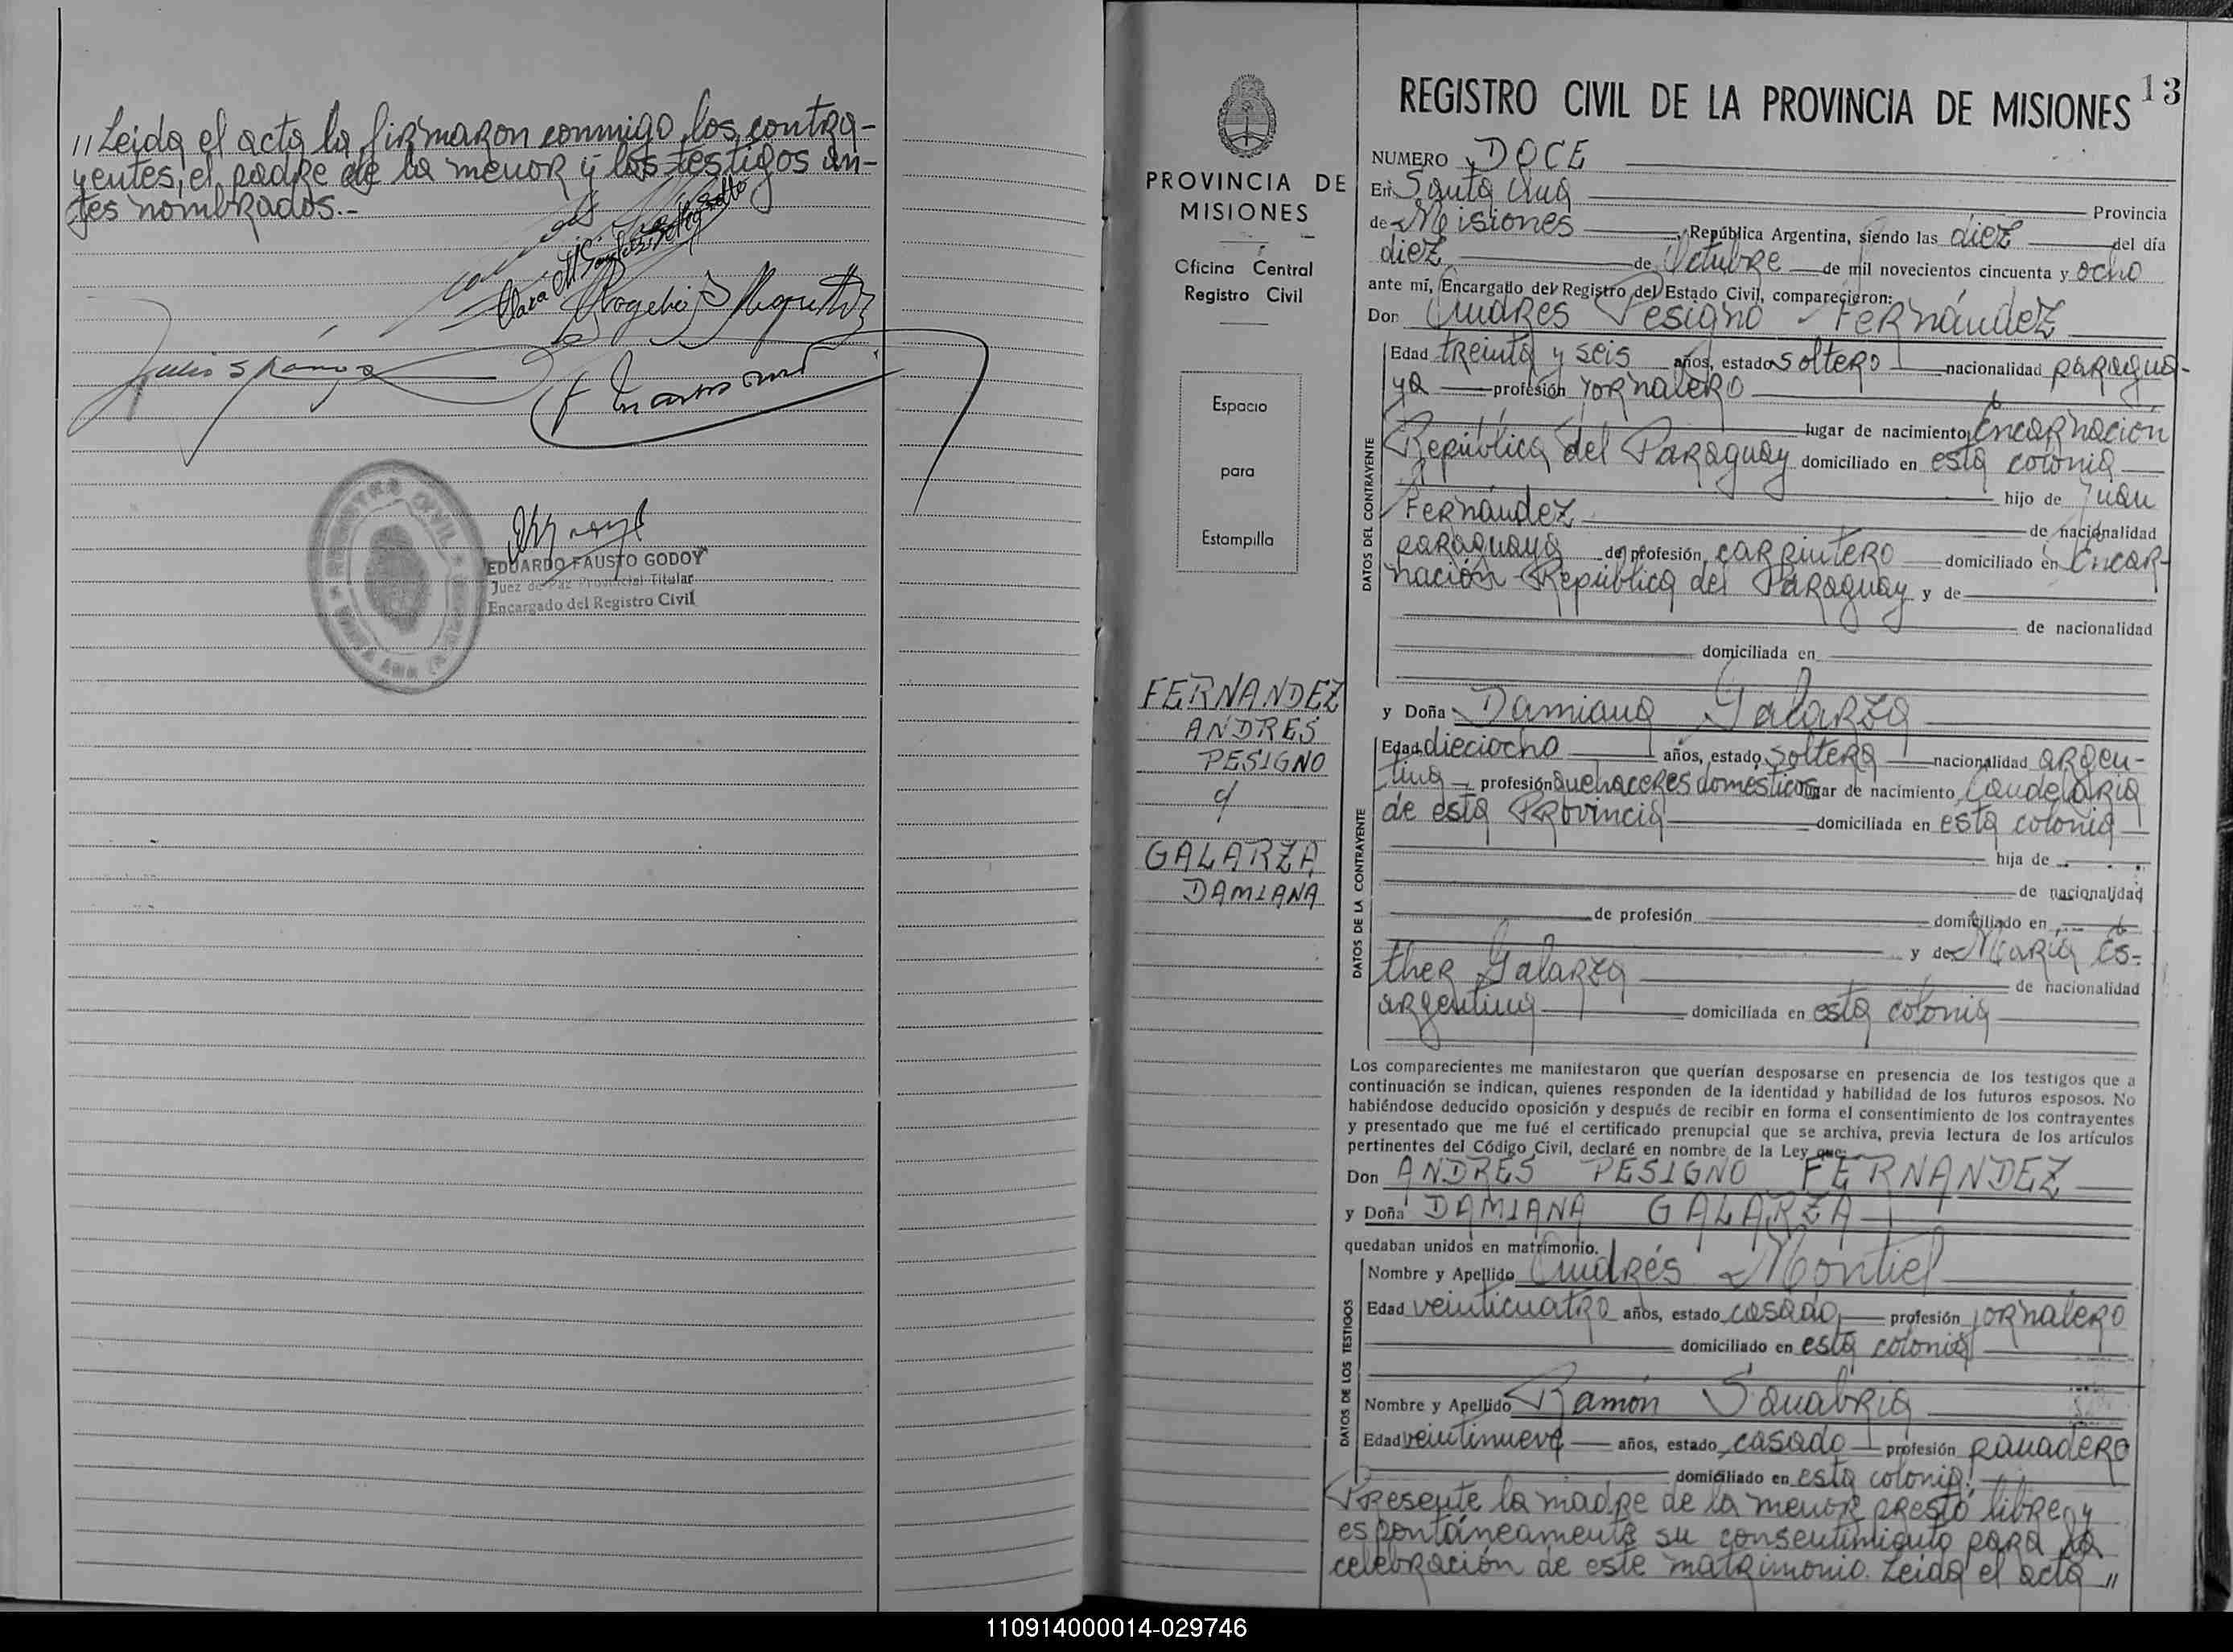 "Leida el acta la firmaron conmigo los contra-
yentes, el padre de la menor y los testigos an-
tes nombrados.-
EDUARDO FAUSTO GODOY
Juez de Paz Provincial Titular
Encargado del Registro Civil
PROVINCIA DE
MISIONES
Oficina Central
Registro Civil
Espacio
para
Estampilla
FERNANDEZ
ANDRES
PESIGNO
c/
GALARZA
DAMIANA
REGISTRO CIVIL DE LA PROVINCIA DE MISIONES 13
NUMERO DOCE
En Santa Ana Provincia
de Misiones, República Argentina, siendo las diez del día
diez de Octubre de mil novecientos cincuenta y ocho
ante mí, Encargado del Registro del Estado Civil, comparecieron:
Don Andres Pesigno Fernández
DATOS DEL CONTRAYENTE
Edad treinta y seis años, estado soltero nacionalidad paragua-
ya profesión jornalero
lugar de nacimiento Encarnación
República del Paraguay domiciliado en esta colonia
hijo de Juan
Fernández de nacionalidad
paraguaya de profesión carpintero domiciliado en Encar-
nación República del Paraguay y de
de nacionalidad
domiciliada en
y Doña Damiana Galarza
DATOS DE LA CONTRAYENTE
Edad dieciocho años, estado soltera nacionalidad argen-
tina profesión quehaceres domesticos lugar de nacimiento Candelaria
de esta Provincia domiciliada en esta colonia
hija de
de nacionalidad
de profesión domiciliado en
y de María Es-
ther Galarza de nacionalidad
argentina domiciliada en esta colonia
Los comparecientes me manifestaron que querían desposarse en presencia de los testigos que a
continuación se indican, quienes responden de la identidad y habilidad de los futuros esposos. No
habiéndose deducido oposición y después de recibir en forma el consentimiento de los contrayentes
y presentado que me fué el certificado prenupcial que se archiva, previa lectura de los artículos
pertinentes del Código Civil, declaré en nombre de la Ley que:
Don ANDRES PESIGNO FERNANDEZ
y Doña DAMIANA GALARZA
quedaban unidos en matrimonio.
DATOS DE LOS TESTIGOS
Nombre y Apellido Andrés Montiel
Edad veinticuatro años, estado casado profesión jornalero
domiciliado en esta colonia
Nombre y Apellido Ramón Sanabria
Edad veintinueve años, estado casado profesión panadero
domiciliado en esta colonia.
Presente la madre de la menor prestó libre y
espontáneamente su consentimiento para la
celebración de este matrimonio. Leida el acta "
110914000014-029746